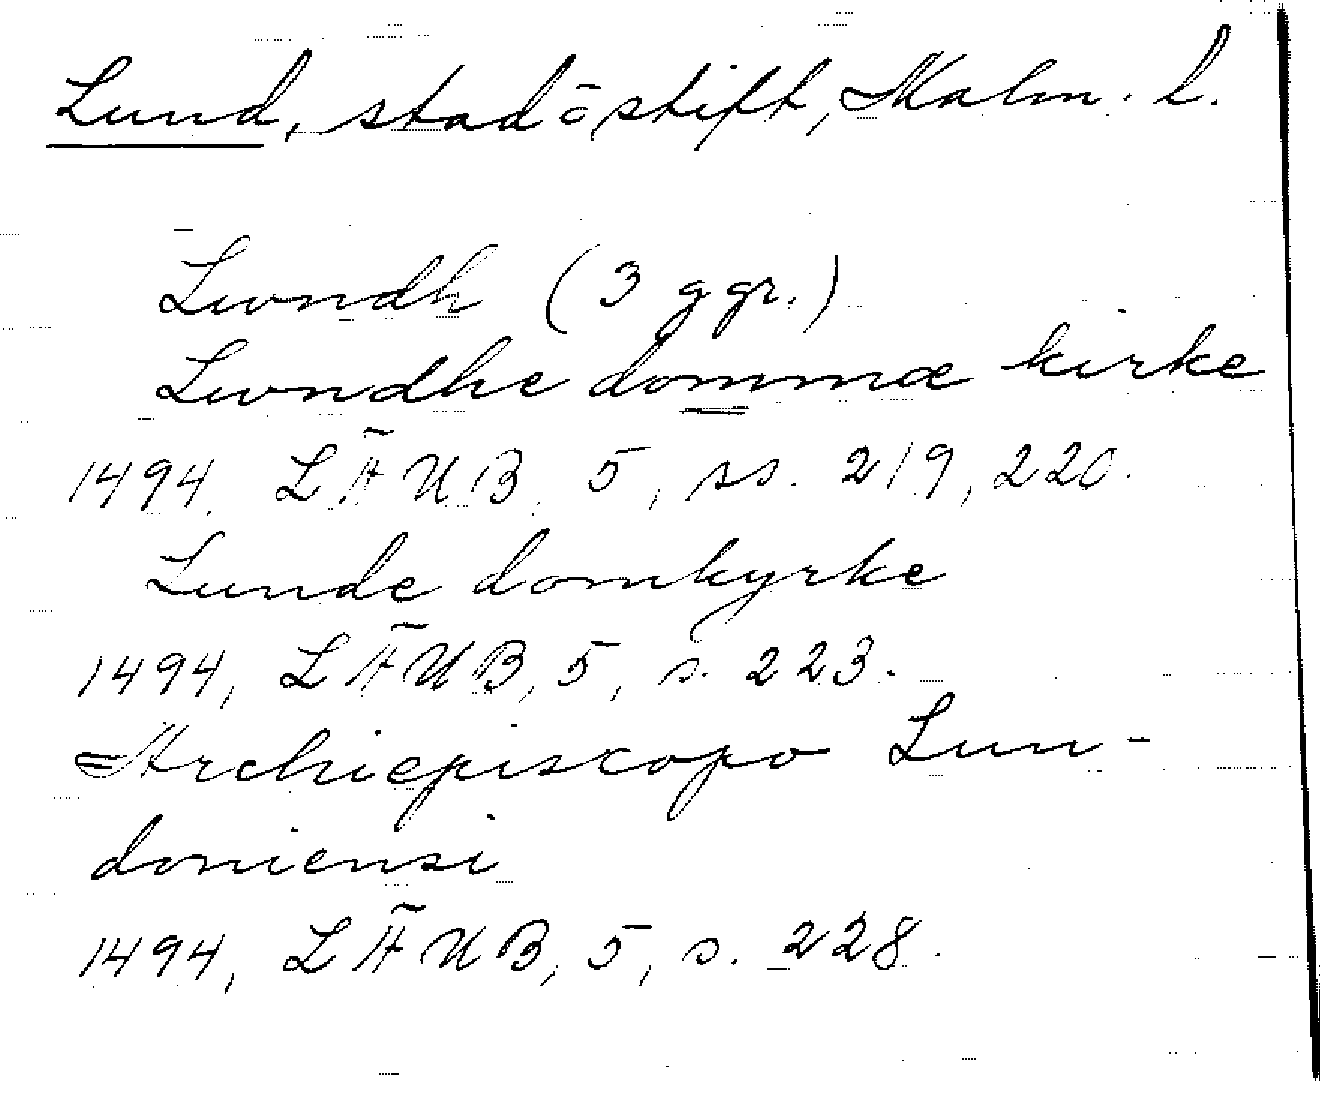 Lund, stad ö stift, Malm. l.
Lwndh (3 ggr.)
Lwndhe dommæ kirke
1494. LÄUB, 5, ss. 219, 220.
Lunde domkyrke
1494, LÄUB, 5, s. 223.
Archiepiscopo Lun-
doniensi
1494, LÄUB, 5, s. 228.